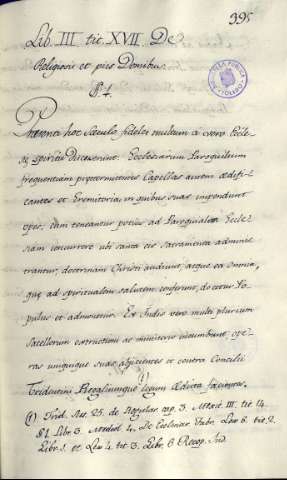 395
Lib. III tit. XVII. De
Religiosis et piis Domibus.
§ 1.
Praesenti hoc saeculo fideles multum a vero Eccle-
siae spiritu discesserunt. Ecclesiarum Paroquialium
frequentiam praetermittentes Capellas autem aedifi-
cantes et Eremitoria in quibus suas impendunt
opes, cum teneantur potius ad Paroquialem Eccle-
siam concurrere ubi sancta eis sacramenta adminis-
trantur, doctrinam Christi audiunt, atque ea omnia,
quae ad spiritualem salutem conferunt, docetur Po-
pulus et admonetur. Ex Indis vero multi plurium
sacellorum extructioni ac ministerio incumbunt, ope-
ras unusquique suas abjicientes et contra Concilii
Tridentini Regaliumque (1) legum edicta facientes.
(1) Trid. Ses. 25. de Regular. cap. 3. Mexic. III. tit. 14.
§ 1. Libr. 3. Mediol. 4. De Eccles. Fabr. Lex 6. tit. 2.
Libr. 1. et Lex 4. tit. 3. Libr. 6 Recop. Ind.
BIBLIOTECA PUBLICA
TOLEDO